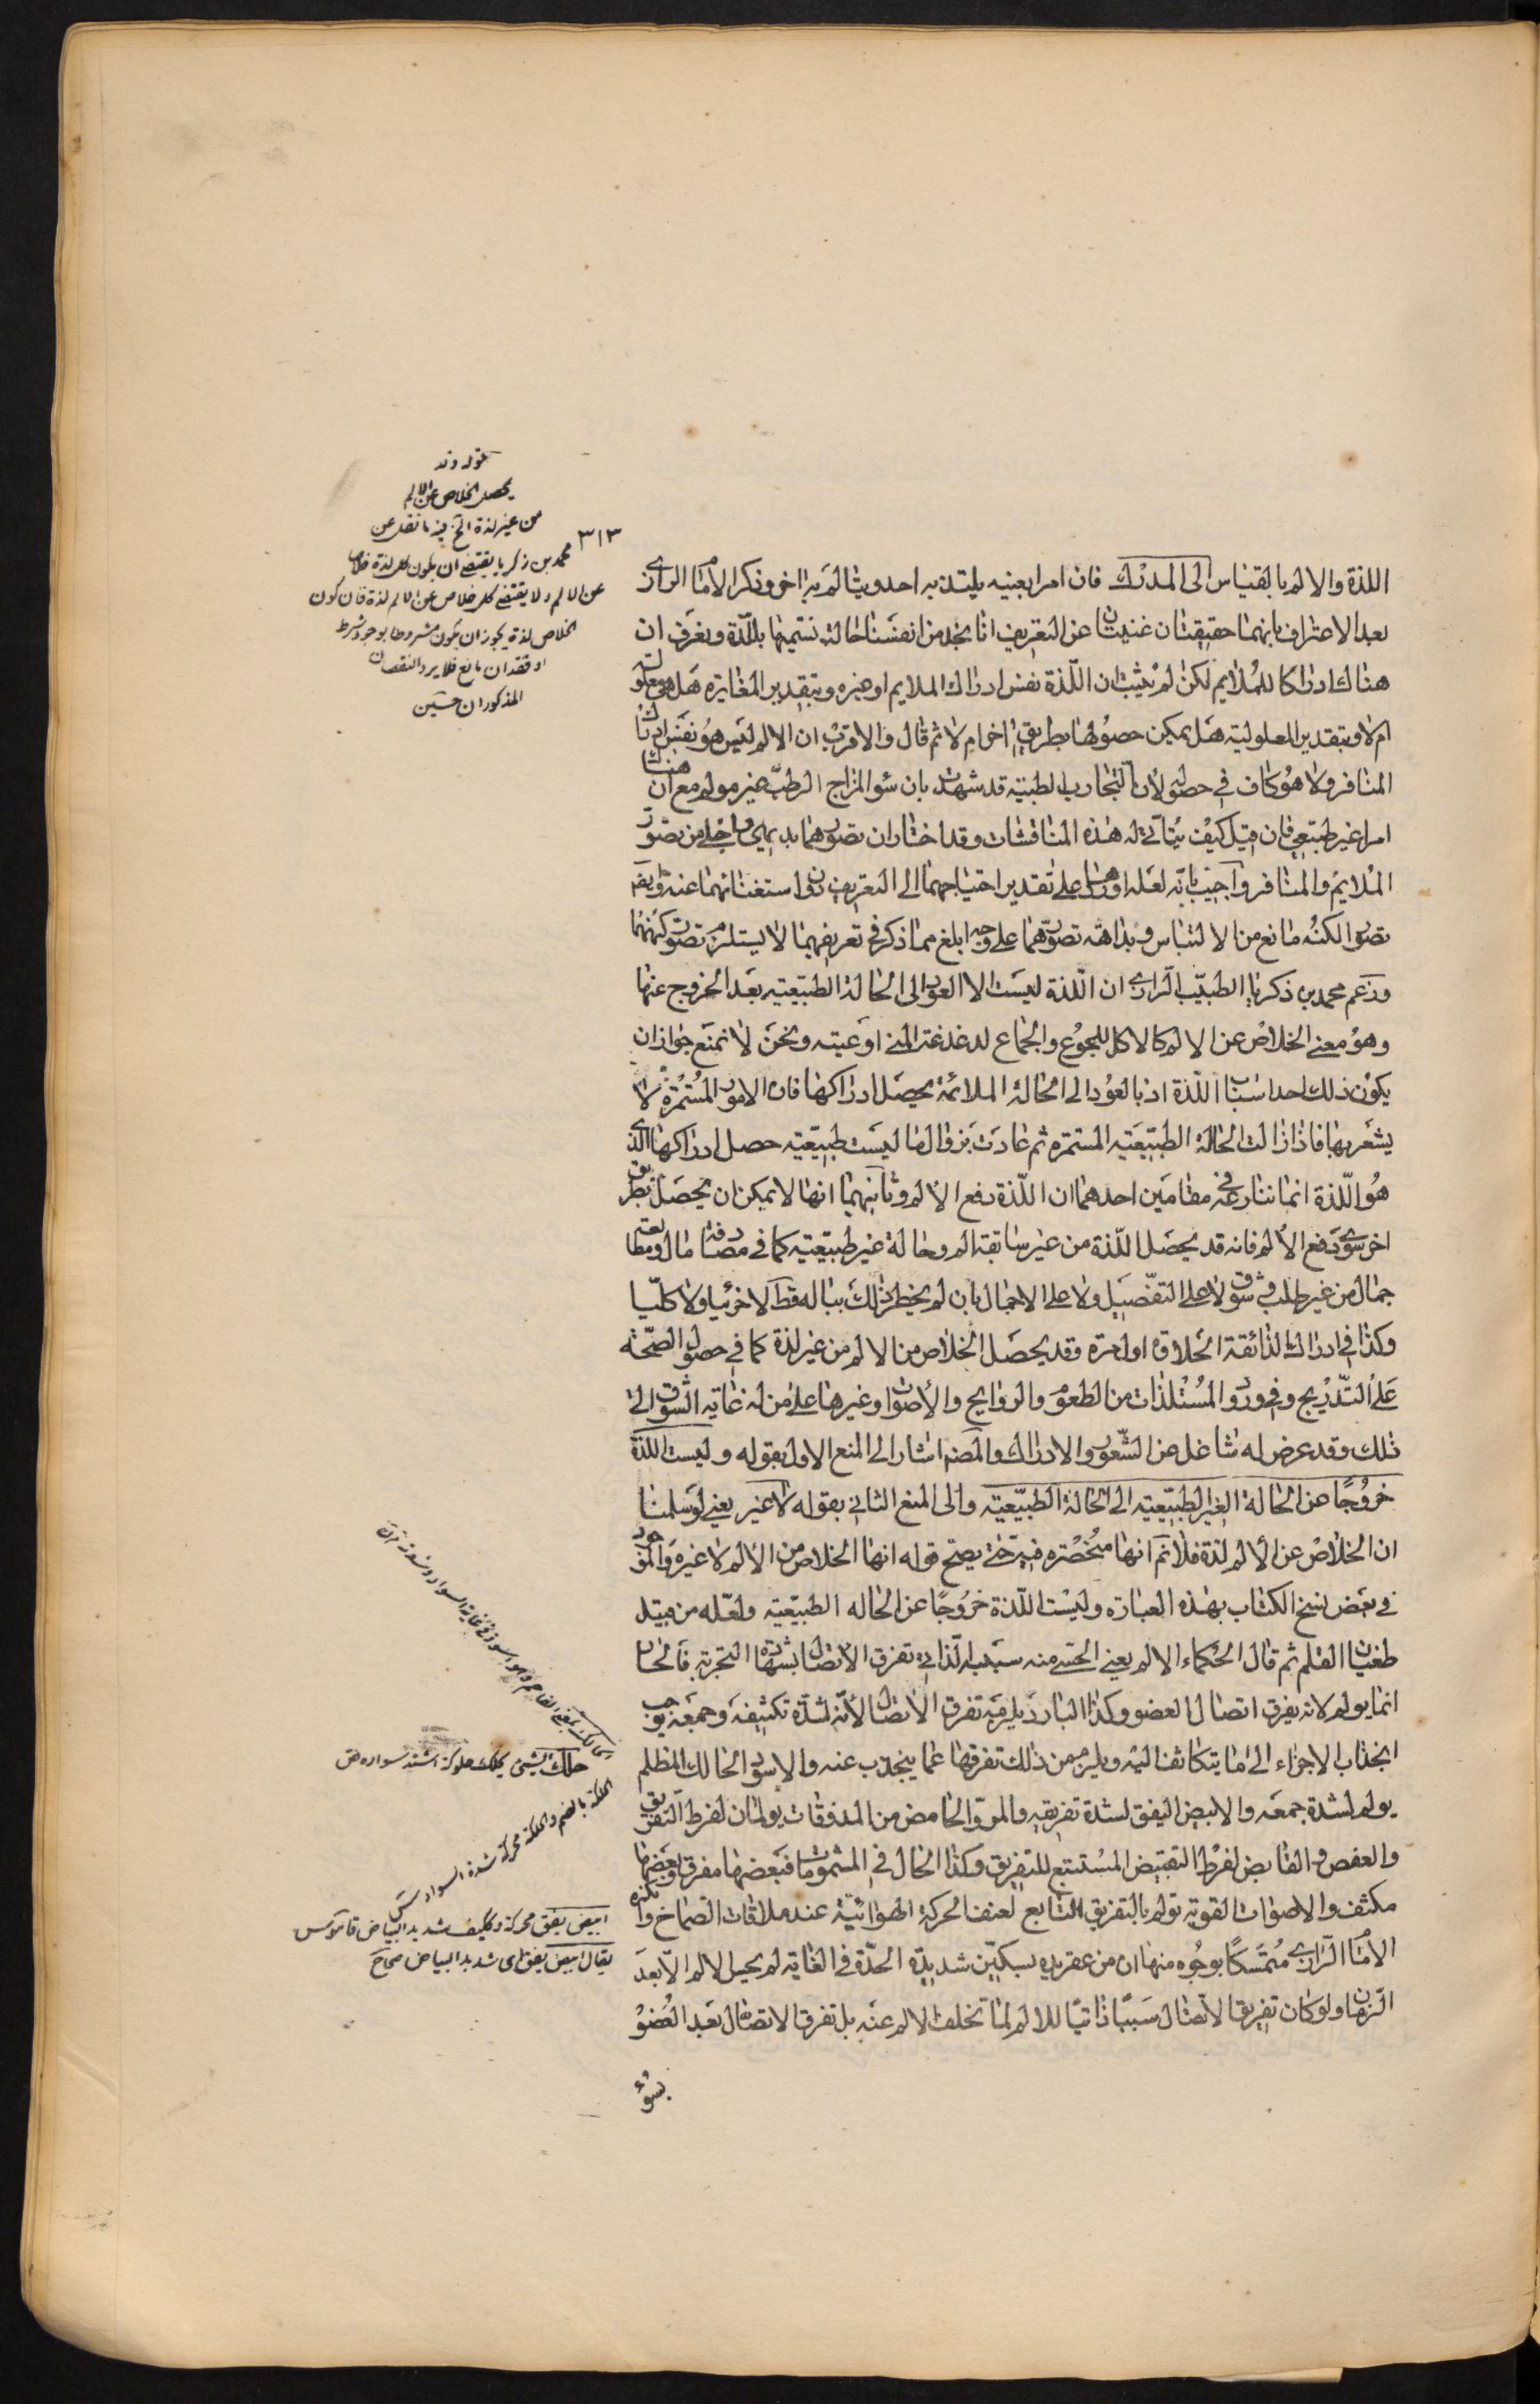 اللذة والالم بالقياس الى المدرك فان امرا بعينه يلتذ به احد ويتألم به اخر وذكر الامام الرازى
بعد الاعتراف بانهما حقيقتان غنيتان عن التعريف انا نجد من انفسنا حالة نسميها باللذة ونعرف ان
هناك ادراكا للملايم لكن لم يثبت ان اللذة نفس ادراك الملايم او غيره وبتقدير المغايرة هل هى معلولة
ام لا وبتقدير المعلولية هل يمكن حصولها بطريق اخر ام لا ثم قال والاقرب ان الالم ليس هو نفس ادراك
المنافر ولا هو كاف في حصوله لان التجارب الطبية قد شهدت بان سوء المزاج الرطب غير مولم مع ان هناك
امرا غير طبيعى فان قيل كيف يتأتى له هذه المناقشات وقد اختار ان تصورهما بديهى واجلى من تصور
الملايم والمنافر واجيب بانه لعله اوردها على تقدير احتياجهما الى التعريف دون استغنائهما عنه وايضا
تصور الكنه مانع من الالتباس وبداهة تصورهما على وجه ابلغ مما ذكر في تعريفهما لا يستلزم تصور كنههما
وزعم محمد بن زكريا الطبيب الرازى ان اللذة ليست الا العود الى الحالة الطبيعية بعد الخروج عنها
وهو معنى الخلاص عن الالم كالاكل للجوع والجماع لدغدغة المنى اوعيته ونحن لا نمنع جواز ان
يكون ذلك احد اسباب اللذة اذ بالعود الى الحالة الملائمة يحصل ادراكها فان الامور المستمرة لا
يشعر بها فاذا زالت الحالة الطبيعية المستمرة ثم عادت بزوال ما ليست طبيعية حصل ادراكها الذى
هو اللذة انما ننازعه في مقامين احدهما ان اللذة دفع الالم وثانيهما انها لا يمكن ان يحصل بطريق
اخر سوى دفع الالم فانه قد يحصل اللذة من غير سابقة الم وحالة غير طبيعية كما في مصادفة مال ومطالعة
جمال من غير طلب وشوق لا على التفصيل ولا على الاجمال بان لم يخطر ذلك بباله قط لا جزئيا ولا كليا
وكذا في ادراك الذائقة الحلاوة اول مرة وقد يحصل الخلاص من الالم من غير لذة كما في حصول الصحة
على التدريج وفي ورود المستلذات من الطعوم والروايح والاصوات وغيرها على من له غاية الشوق الى
ذلك وقد عرض له شاغل عن الشعور والادراك والمصنف اشار الى المنع الاول بقوله وليست اللذة
خروجًا عن الحالة الغير الطبيعية الى الحالة الطبيعية والى المنع الثانى بقوله لا غير يعنى لو سلمنا
ان الخلاص عن الالم لذة فلا نم انها منحصرة فيه حتى يصح قوله انها الخلاص من الالم لا غيره والموجود
في بعض نسخ الكتاب بهذه العبارة وليست اللذة خروجًا عن الحالة الطبيعية ولعله من قبيل
طغيان القلم ثم قال الحكماء الالم يعنى الحسى منه سببه الذاتى تفرق الاتصال بشهادة التجربة فالحار
انما يولم لانه يفرق اتصال العضو وكذا البارد يلزمه تفرق الاتصال لانه لشدة تكثيفه وجمعه يوجب
انجذاب الاجزاء الى ما يتكاثف اليه ويلزم من ذلك تفرقها عما ينجذب عنه والاسود الحالك المظلم
يولم لشدة جمعه والابيض اليفق لشدة تفريقه والمر والحامض من المذوقات يولمان لفرط التفريق
والعفص والقابض لفرط التقبيض المستتبع للتفريق وكذا الحال في المشمومات فبعضها مفرق وبعضها
مكثف والاصوات القوية تولم بالتفريق التابع لعنف الحركة الهوائية عند ملاقات الصماخ وانكره
الامام الرازى متمسكًا بوجوه منها ان من عقر يده بسكين شديدة الحدة في الغاية لم يحس الالم الا بعد
الزمان ولو كان تفرق الاتصال سببًا ذاتيًا للالم لما تخلف الالم عنه بل تفرق الاتصال بعد العضو
بسوء
٣١٣
قوله وقد
يحصل الخلاص عن الالم
من غير لذة الخ فيه ما نقل عن
محمد بن زكريا يقتضى ان يكون كل لذة خلاصا
عن الالم ولا يقتضى كل خلاص عن الالم لذة فان كون
الخلاص لذة يجوز ان يكون مشروطا بوجود شرط
او فقدان مانع فلا يرد النقضان
المذكوران حسين
حلك الشئ يحلك حلوكة اشتد سواده ص
الحلكة بالضم والحلكة محركة شدة السواد
ابيض يقق محركة وككيف شديد البياض قاموس
يقال ابيض يقق اى شديد البياض صحاح